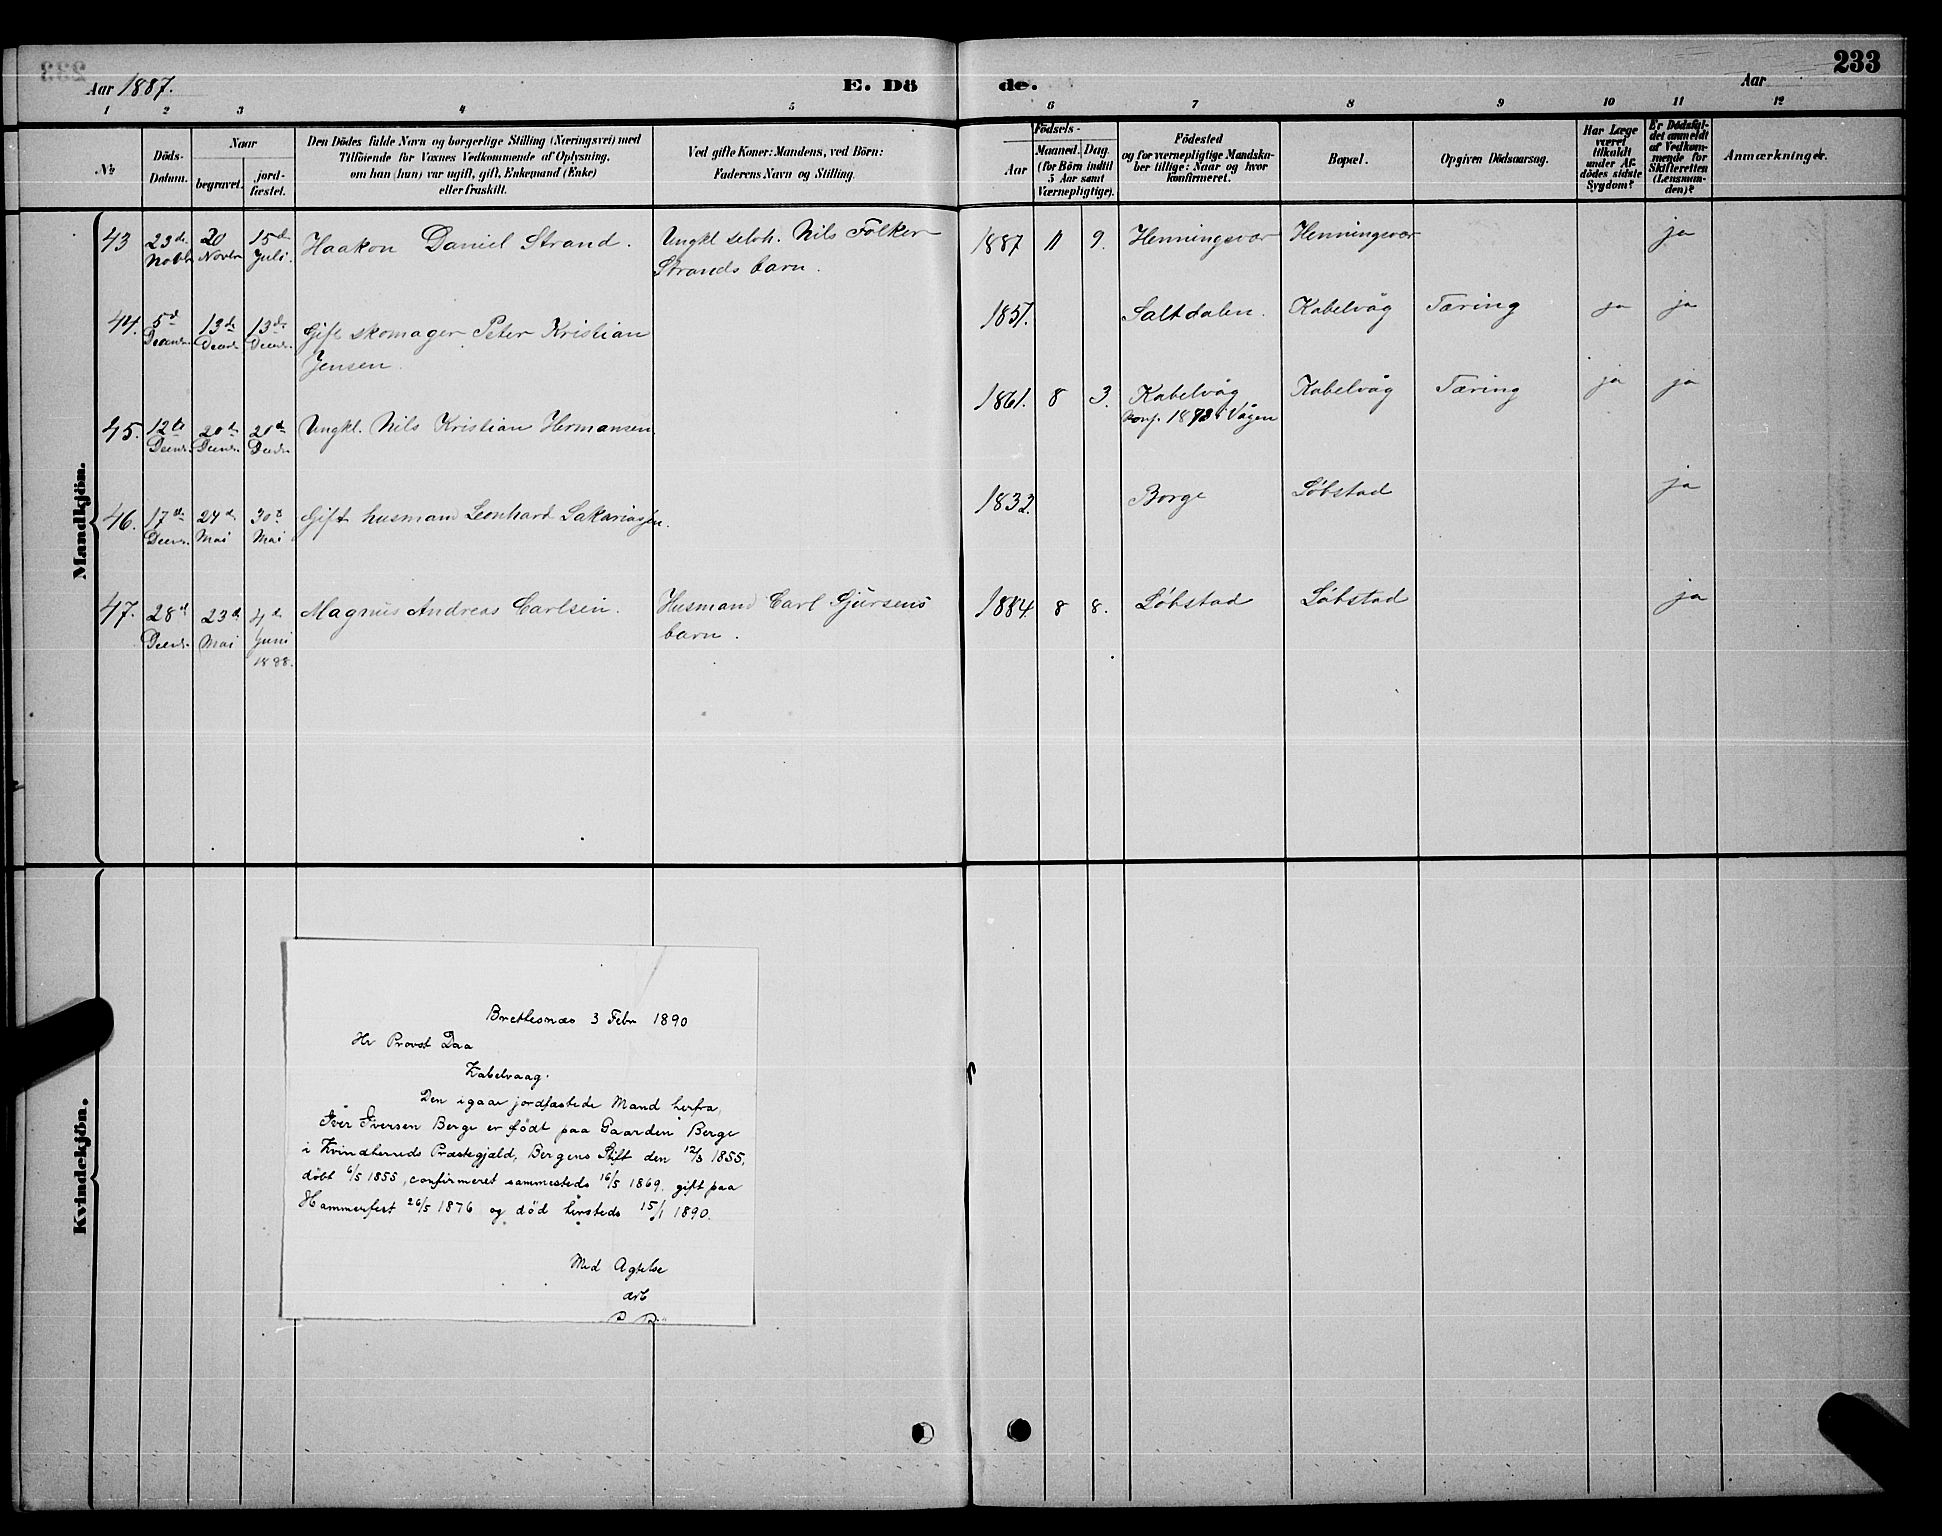 Aar 1887. E. Dö de. Aar 233
1 2 3 4 5 6 7 8 9 10 11 12
№
Döds-
Datum.
Naar
begravet.
jord-
fæstet.
Den Dödes fulde Navn og borgerlige Stilling (Næringsvei) med
Tilföiende for Voxnes Vedkommende af Oplysning,
om han (hun) var ugift, gift, Enkemand (Enke)
eller fraskilt.
Ved gifte Koner: Mandens, ved Börn:
Faderens Navn og Stilling.
Födsels-
Aar
Maaned. Dag.
(for Börn indtil
5 Aar samt
Værnepligtige).
Födested
og for værnepligtige Mandska-
ber tillige: Naar og hvor
konfirmeret.
Bopæl.
Opgiven Dödsaarsag.
Har Læge
været
tilkaldt
under Af-
dödes sidste
Sygdom?
Er Dödsfal-
det anmeldt
af Vedkom-
mende for
Skifteretten
(Lensman-
den)?
Anmærkninger.
Mandkjön.
43 23de 20 15de Haakon Daniel Strand. Ungkl selvh. Nils Folker 1887 11 9. Henningsvær Henningsvær ja
Novbr Novbr Juli. Strands barn.
44. 5d 13de 13de Gift skomager Peter Kristian 1851. Saltdalen. Kabelvåg Tæring ja ja
Decmbr. Decmbr Decmbr. Jensen.
45. 12te 20de 20de Ungkl. Nils Kristian Hermansen. 1861. 8 3. Kabelvåg Kabelvåg Tæring ja ja
Decmbr. Decmbr. Decbr. Konf. 1878 i Vågen
46. 17de 24de 30te Gift husmand Leonhard Sakariasen. 1832. Borge Løbstad ja
Decmbr. Mai Mai
47. 28de 23de 4de Magnus Andreas Carlsen. Husmand Carl Sjursens 1884 8 8. Løbstad Løbstad ja
Decmbr. Mai Juni barn.
1888.
Kvindekjön.
Brettesnæs 3 Febr 1890
Hr Provst Daa
Kabelvaag.
Den igaar jordfæstede Mand herfra,
Iver Iversen Berge er født paa Gaarden Berge
i Kvindherreds Præstegjæld, Bergens Stift den 12/3 1855,
døbt 6/5 1855, confirmeret sammesteds 16/5 1869, gift paa
Hammerfest 26/5 1876 og død hersteds 15/1 1890.
Med Agtelse
ærb